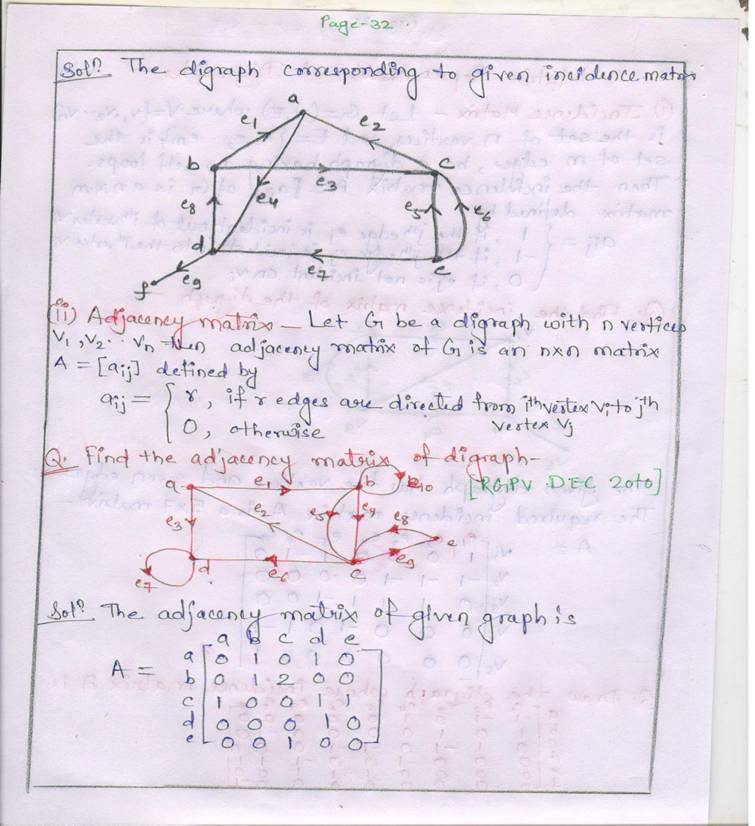 Page-32
Solⁿ. The digraph corresponding to given incidence matrix
a
e1
e2
b
c
e3
e4
e8
e5
e6
d
e
e7
f
e9
(ii) Adjacency matrix – Let G be a digraph with n vertices
V1, V2 ... Vn then adjacency matrix of G is an n×n matrix
A = [aij] defined by
aij = { r, if r edges are directed from ith vertex Vi to jth vertex Vj
0, otherwise
Q. Find the adjacency matrix of digraph-
[RGPV DEC 2010]
a
e1
b
e10
e2
e3
e5
e4
e8
e
d
e7
e6
c
e9
Solⁿ. The adjacency matrix of given graph is
a b c d e
A =
a 0 1 0 1 0
b 0 1 2 0 0
c 1 0 0 1 1
d 0 0 0 1 0
e 0 0 1 0 0